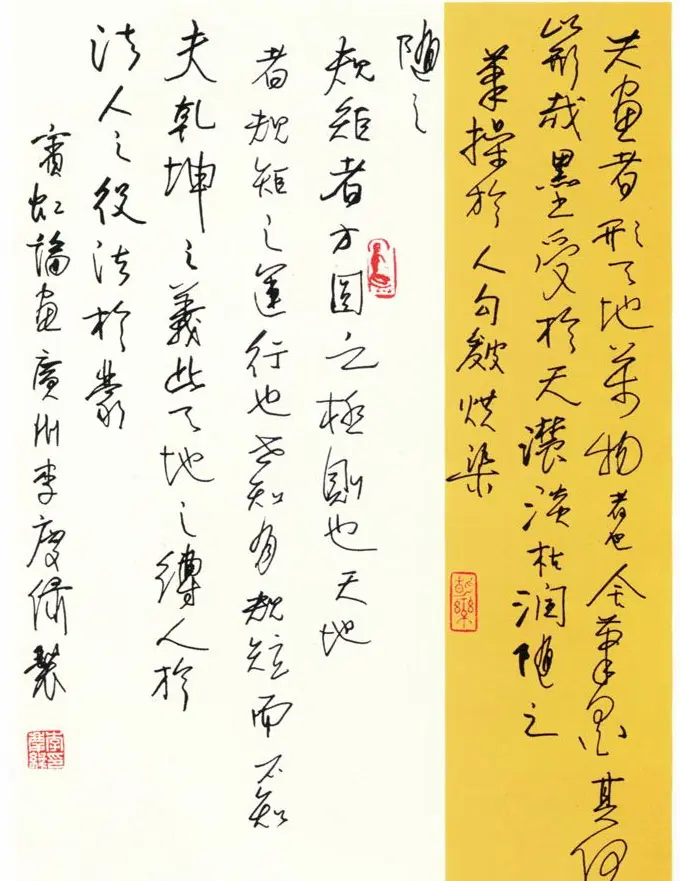 夫畫者形天地萬物者也舍筆墨其何
以形哉墨受於天濃淡枯润隨之
筆操於人勾皴烘染
隨之
規矩者方圓之極則也天地
者規矩之運行也世知有規矩而不知
夫乾坤之義此天地之縛人於
法人之役法於蒙
賓虹論畫廣州李慶製